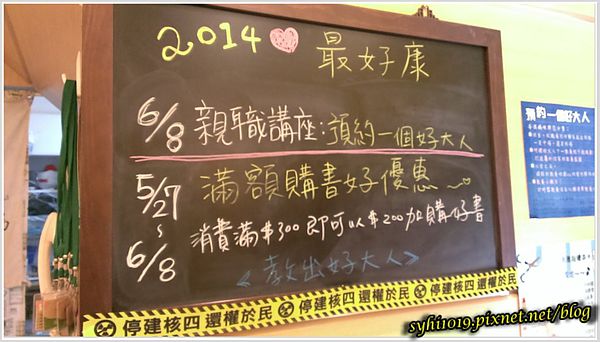 2014 最好康
6/8 親職講座:預約一個好大人
5/27~6/8 滿額購書好優惠
消費滿$300即可以$200加購好書
<教出好大人>
停建核四 還權於民 停建核四 還權於民 停建核四 還權於民
預約一個好大人
syhi1019.pixnet.net/blog